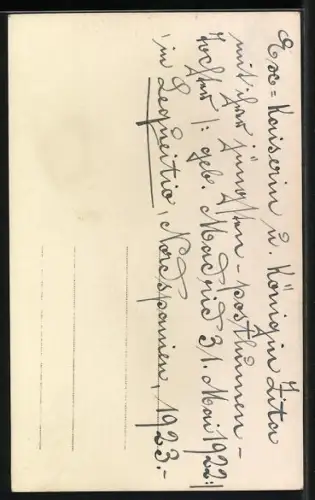 Ex=Kaiserin u. Königin Zita
mit ihrer jüngsten - posthumen -
Tochter /: geb. Madrid 31. Mai 1922 :/
in Lequeitio, Nordspanien, 1923.-